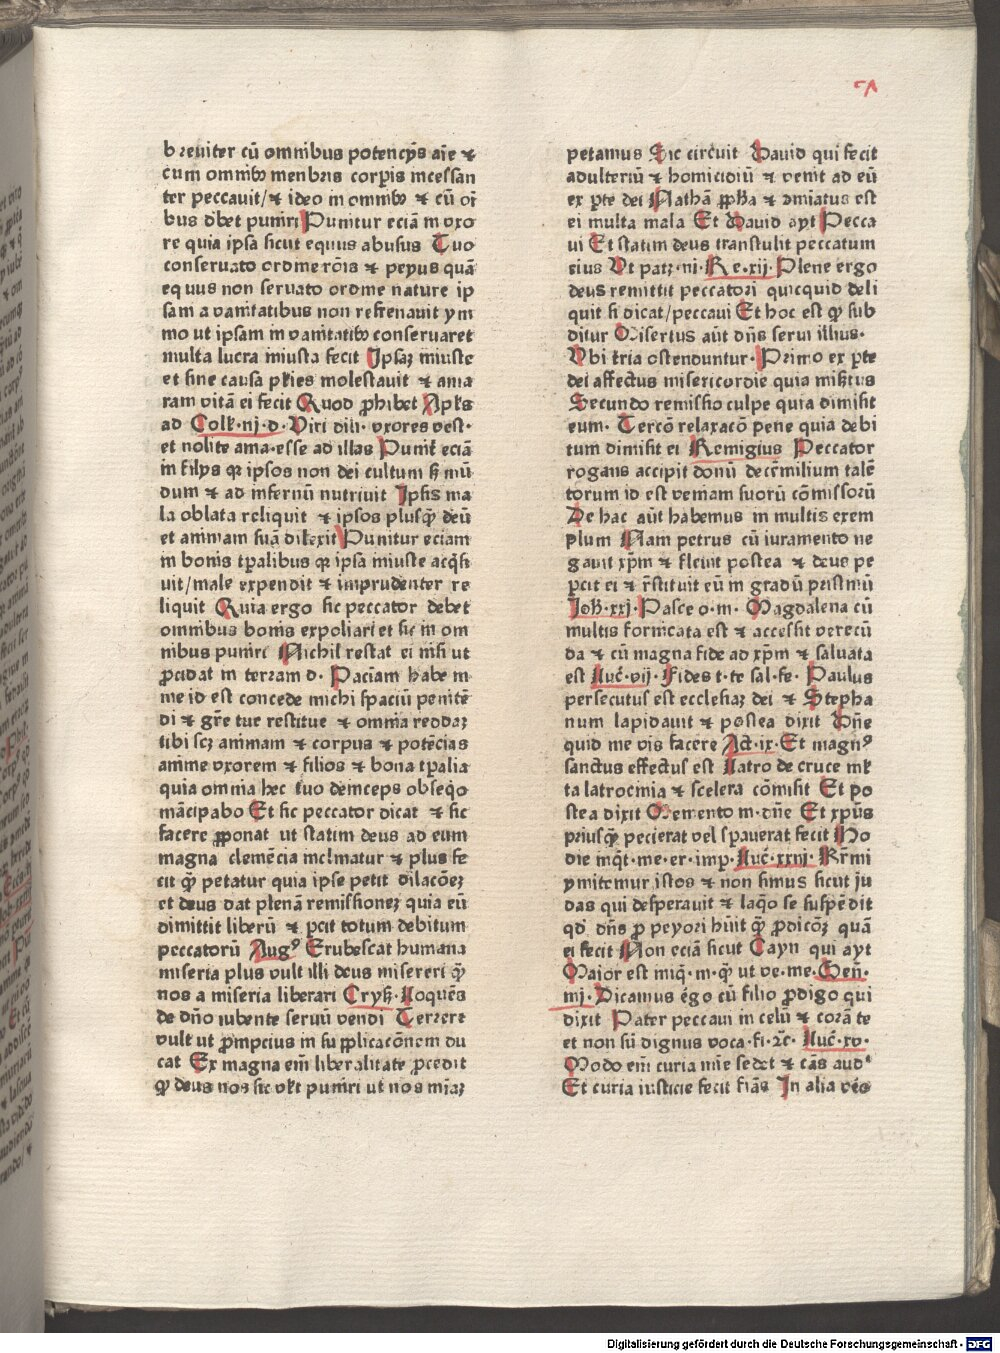 breuiter cū omnibus potencijs aīe ⁊
cum omnibꝰ menbris corpis incessan
ter peccauit/⁊ ideo in omnibꝰ ⁊ cū oī
bus dꝫbet puniri Punitur eciā in vxo
re quia ipsa sicut equus abusus Tuo
conseruato ordine rōis ⁊ peyus quā
equus non seruato ordine nature ip
sam a vanitatibus non refrenauit ym
mo ut ipsam in vanitatibꝰ conseruaret
multa lucra iniusta fecit Ipsaꝫ iniuste
et sine causa pꝉies molestauit ⁊ ama
ram vitā ei fecit Quod ꝓhibet Apꝉs
ad Coll·iij·d· Viri dili· vxores vest·
et nolite ama·esse ad illas Punit̄ eciā
in filijs qꝛ ipsos non dei cultum sꝫ mū
dum ⁊ ad infernū nutriuit Ipsis ma
la oblata reliquit ⁊ ipsos plusq̄ȝ deū
et animam suā dilexit Punitur eciam
in bonis tꝑalibus qꝛ ipsa iniuste acq̄si
uit/male expendit ⁊ imprudenter re
liquit Quia ergo sic peccator debet
omnibus bonis expoliari et sic in om
nibus puniri Nichil restat ei nisi ut
ꝓcidat in terram d· Paciam habe in
me id est concede michi spaciū penitē
di ⁊ grē tue restitue ⁊ omnia reddaꝫ
tibi scꝫ animam ⁊ corpus ⁊ potēcias
anime vxorem ⁊ filios ⁊ bona tꝑalia
quia omnia hec tuo deinceps obseqo
mācipabo Et sic peccator dicat ⁊ sic
facere ꝓponat ut statim deus ad eum
magna clemēcia inclinatur ⁊ plus fe
cit q̄ȝ petatur quia ipse petit dilacōeꝫ
et deus dat plenā remissioneꝫ quia eū
dimittit liberū ⁊ ꝑcit totum debitum
peccatorū Augꝰ Erubescat humana
miseria plus vult illi deus misereri q̄ȝ
nos a miseria liberari Cryß· Loquēs
de dn̄o iubente seruū vendi Terrere
vult ut ꝓmpcius in su ꝓplicacōnem du
cat Ex magna eīm liberalitate ꝓcedit
ꝙ deus nos sic vꝉt puniri ut nos mīaꝫ
petamus Sic circuit Dauid qui fecit
adulteriū ⁊ homicidiū ⁊ venit ad eū
ex ꝑte dei Nathā ꝓpħa ⁊ ꝯminatus est
ei multa mala Et Dauid ayt Pecca
ui Et statim deus transtulit peccatum
eius Vt patꝫ·ij·Re·xij· Plene ergo
deus remittit peccatori quicquid deli
quit si dicat/peccaui Et hoc est ꝙ sub
ditur Misertus aūt dn̄s serui illius·
Vbi tria ostenduntur· Primo ex ꝑte
dei affectus misericordie quia misrtus
Secundo remissio culpe quia dimisit
eum· Tercō relaxacō pene quia debi
tum dimisit ei Remigius Peccator
rogans accipit donū decē milium talē
torum id est veniam suorū cōmissorū
De hac aūt habemus in multis exem
plum Nam petrus cū iuramento ne
gauit xp̄m ⁊ fleuit postea ⁊ deus pe
ꝑcit ei ⁊ r̄stituit eū in gradū pristinū
Joħ·xxj· Pasce o·m· Magdalena cū
multis fornicata est ⁊ accessit verecū
da ⁊ cū magna fide ad xp̄m ⁊ saluata
est Luc̄·vij· Fides t·te sal·fe· Paulus
persecutus est ecclesiaꝫ dei ⁊ Stepha
num lapidauit ⁊ postea dixit Dn̄e
quid me vis facere Act·ix·Et magnꝰ
sanctus effectus est Latro de cruce mꝉ
ta latrocinia ⁊ scelera cōmisit Et po
stea dixit Memento m·dn̄e Et xp̄us
priusq̄ȝ pecierat vel sꝑauerat fecit Ho
die inq̄t·me·er·imp·Luc̄·xxiij· Kr̄mi
ymitemur istos ⁊ non simus sicut ju
das qui desperauit ⁊ laq̄o se suspēdit
qd dn̄s ꝓ peyori hūit q̄ȝ ꝓdicōꝫ quā
ei fecit Non eciā sicut Cayn qui ayt
Maior est miq̄·m·q̄ȝ ut ve·me·Gen̄·
iiij· Dicamus ḡo cū filio ꝓdigo qui
dixit Pater peccaui in celū ⁊ corā te
et non sū dignus voca·fi·⁊c̄· Luc̄·xv·
Modo eīm curia mīe sedet ⁊ cās aud
Et curia iusticie fecit finās In alia vēo
Digitalisierung gefördert durch die Deutsche Forschungsgemeinschaft · DFG